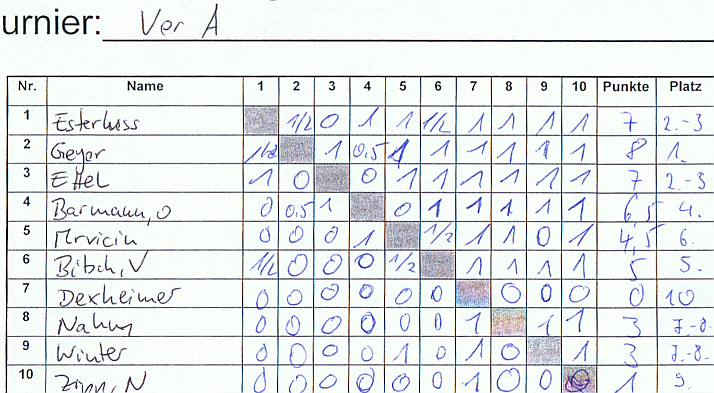 urnier: Vor A
Nr. Name 1 2 3 4 5 6 7 8 9 10 Punkte Platz
1 Esterluss 1/2 0 1 1 1/2 1 1 1 1 7 2.-3
2 Geyer 1/2 1 0,5 1 1 1 1 1 1 8 1.
3 Ettel 1 0 0 1 1 1 1 1 1 7 2.-3
4 Barmann, O 0 0,5 1 0 1 1 1 1 1 6,5 4.
5 Mrvicin 0 0 0 1 1/2 1 1 0 1 4,5 6.
6 Bitsch, V 1/2 0 0 0 1/2 1 1 1 1 5 5.
7 Dexheimer 0 0 0 0 0 0 0 0 0 0 10
8 Nahm 0 0 0 0 0 0 1 1 1 3 7.-8.
9 Winter 0 0 0 0 1 0 1 0 1 3 7.-8.
10 Zipp, N 0 0 0 0 0 0 1 0 0 1 9.